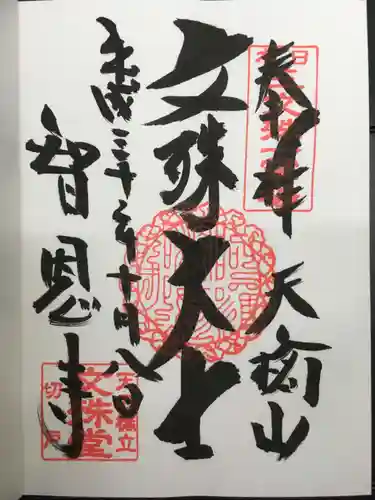 奉拝
天橋山
文殊大士
平成三十年十月八日
智恩寺
日
三文殊
天橋立
文珠堂
切戸